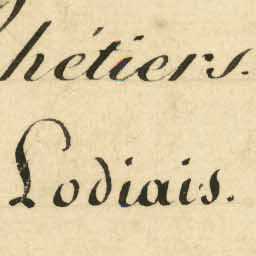 hétiers.
Lodiais.